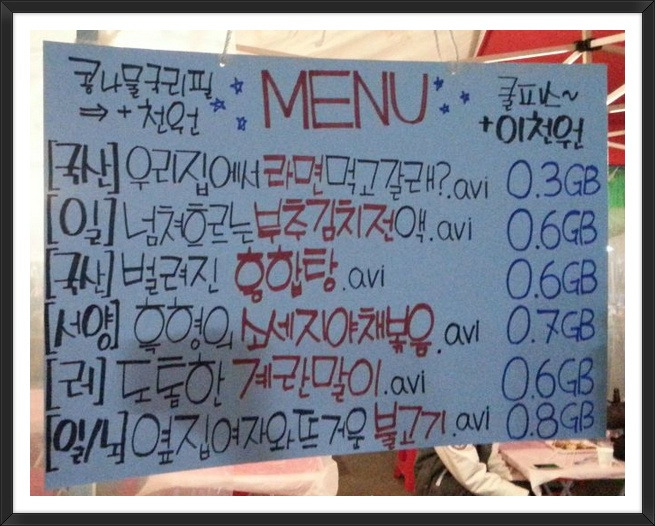 콩나물국리필 MENU 쿨피스~
⇒ +천원 +이천원
[국산] 우리집에서 라면먹고갈래?.avi 0.3GB
[일] 넘쳐흐르는 부추김치전액.avi 0.6GB
[국산] 벌려진 홍합탕.avi 0.6GB
[서양] 흑형의 소세지야채볶음.avi 0.7GB
[레] 도톰한 계란말이.avi 0.6GB
[일/노] 옆집여자와뜨거운 불고기.avi 0.8GB